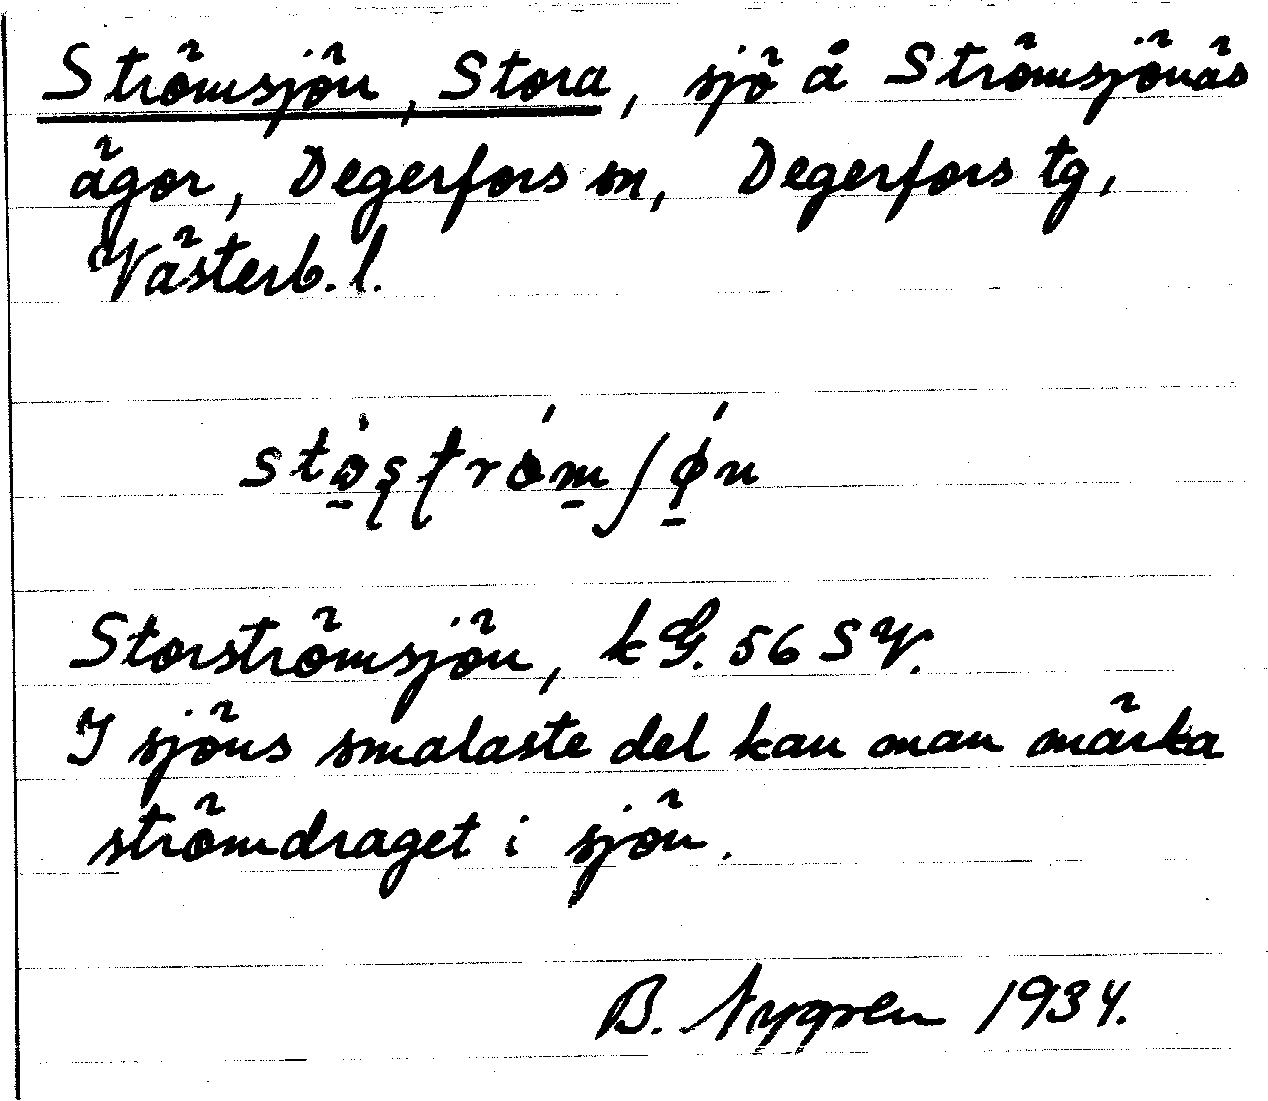 Strömsjön, Stora, sjö å Strömsjönäs
ägor, Degerfors sn, Degerfors tg,
Västerb. l.
Storströmsjön, kG. 56 SV.
I sjöns smalaste del kan man märka
strömdraget i sjön.
B. Nygren 1934.